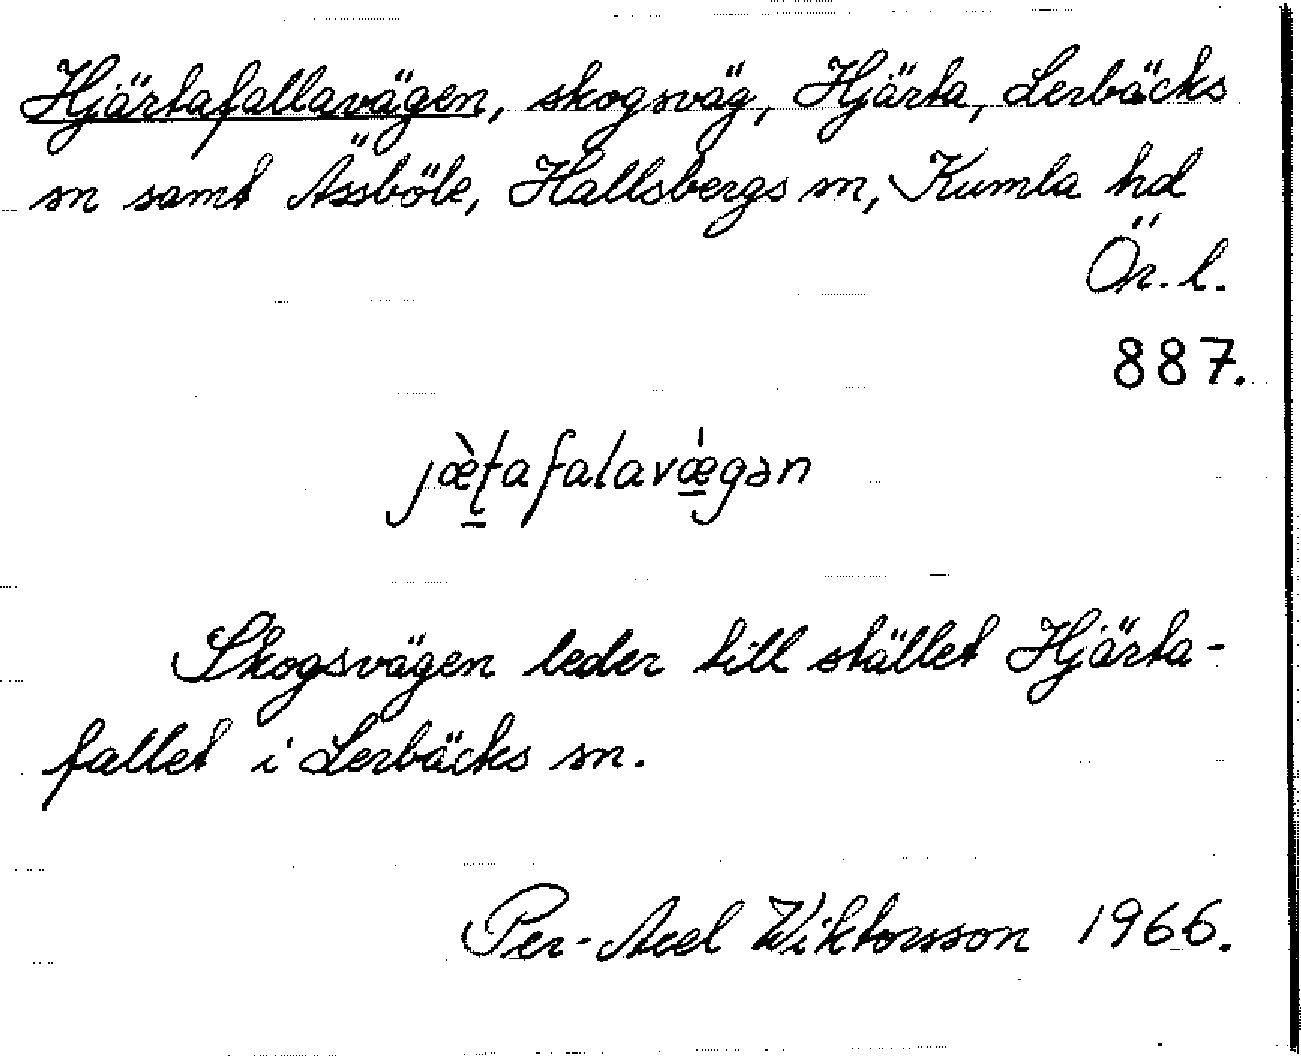 Hjärtafallavägen, skogsväg, Hjärta, Lerbäcks
sn samt Ässböle, Hallsbergs sn, Kumla hd
Ör. l.
887.
jæ̀ʈafalavǽgən
Skogsvägen leder till stället Hjärta-
fallet i Lerbäcks sn.
Per-Axel Wiktorsson 1966.